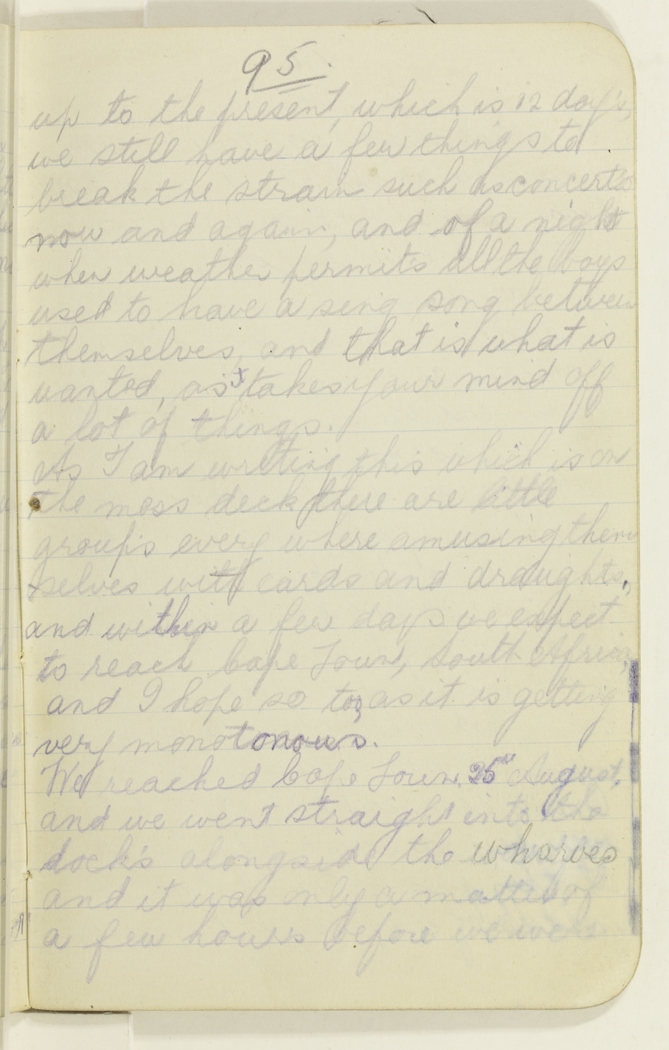 95.
up to the present, which is 12 day's,
we still have a few things to
break the strain such as concert's
now and again, and of a night
when weather permits all the boys
used to have a sing song between
themselves, and that is what is
wanted, as it takes your mind off
a lot of things.
As I am writing this which is on
the mess deck there are little
group's every where amusing them
selves with cards and draughts,
and within a few days we expect
to reach Cape Town, South Africa,
and I hope so too as it is getting
very monotonous.
We reached Cape Town 25th August,
and we went straight into the
dock's alongside the wharves
and it was only a matter of
a few hours before we were